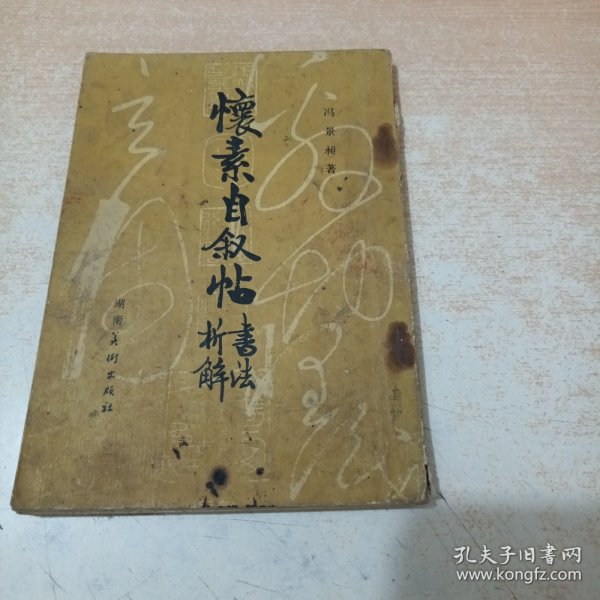 冯景昶著
懷素自叙帖
書法
析解
湖南美術出版社
孔夫子旧書网
www.kongfz.com